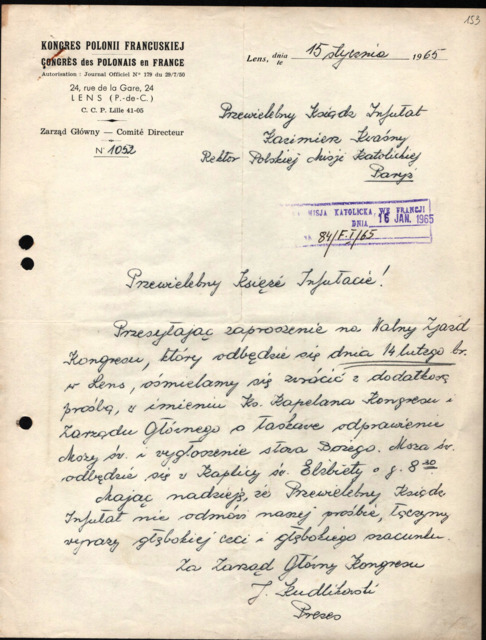 153
KONGRES POLONII FRANCUSKIEJ
CONGRÈS des POLONAIS en FRANCE
Autorisation : Journal Officiel N° 179 du 29/7/50
24, rue de la Gare, 24
LENS (P.-de-C.)
C. C. P. Lille 41-05
Zarząd Główny — Comité Directeur
N° 1052
Lens, dnia/le 15 stycznia 1965
Przewielebny Ksiądz Infułat
Kazimierz Kwaśny
Rektor Polskiej Misji Katolickiej
Paryż
MISJA KATOLICKA WE FRANCJI
DNIA 16 JAN. 1965
84/F.I/65
Przewielebny Księże Infułacie!
Przesyłając zaproszenie na Walny Zjazd
Kongresu, który odbędzie się dnia 14 lutego br.
w Lens, ośmielamy się zwrócić z dodatkową
prośbą, w imieniu Ks. Kapelana Kongresu i
Zarządu Głównego o łaskawe odprawienie
Mszy św. i wygłoszenie słowa Bożego. Msza św.
odbędzie się w Kaplicy św. Elżbiety o g. 8³⁰
Mając nadzieję, że Przewielebny Ksiądz
Infułat nie odmówi naszej prośbie, łączymy
wyrazy głębokiej czci i głębokiego szacunku.
Za Zarząd Główny Kongresu
J. Kudlikowski
Prezes